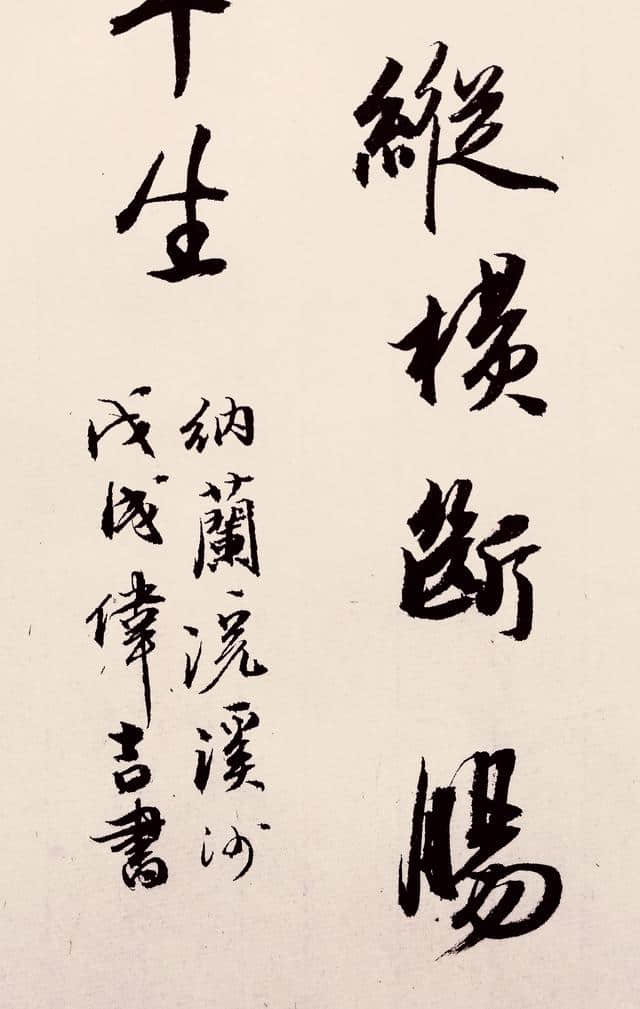 縱橫斷腸
生
納蘭浣溪沙
戊戌偉吉書